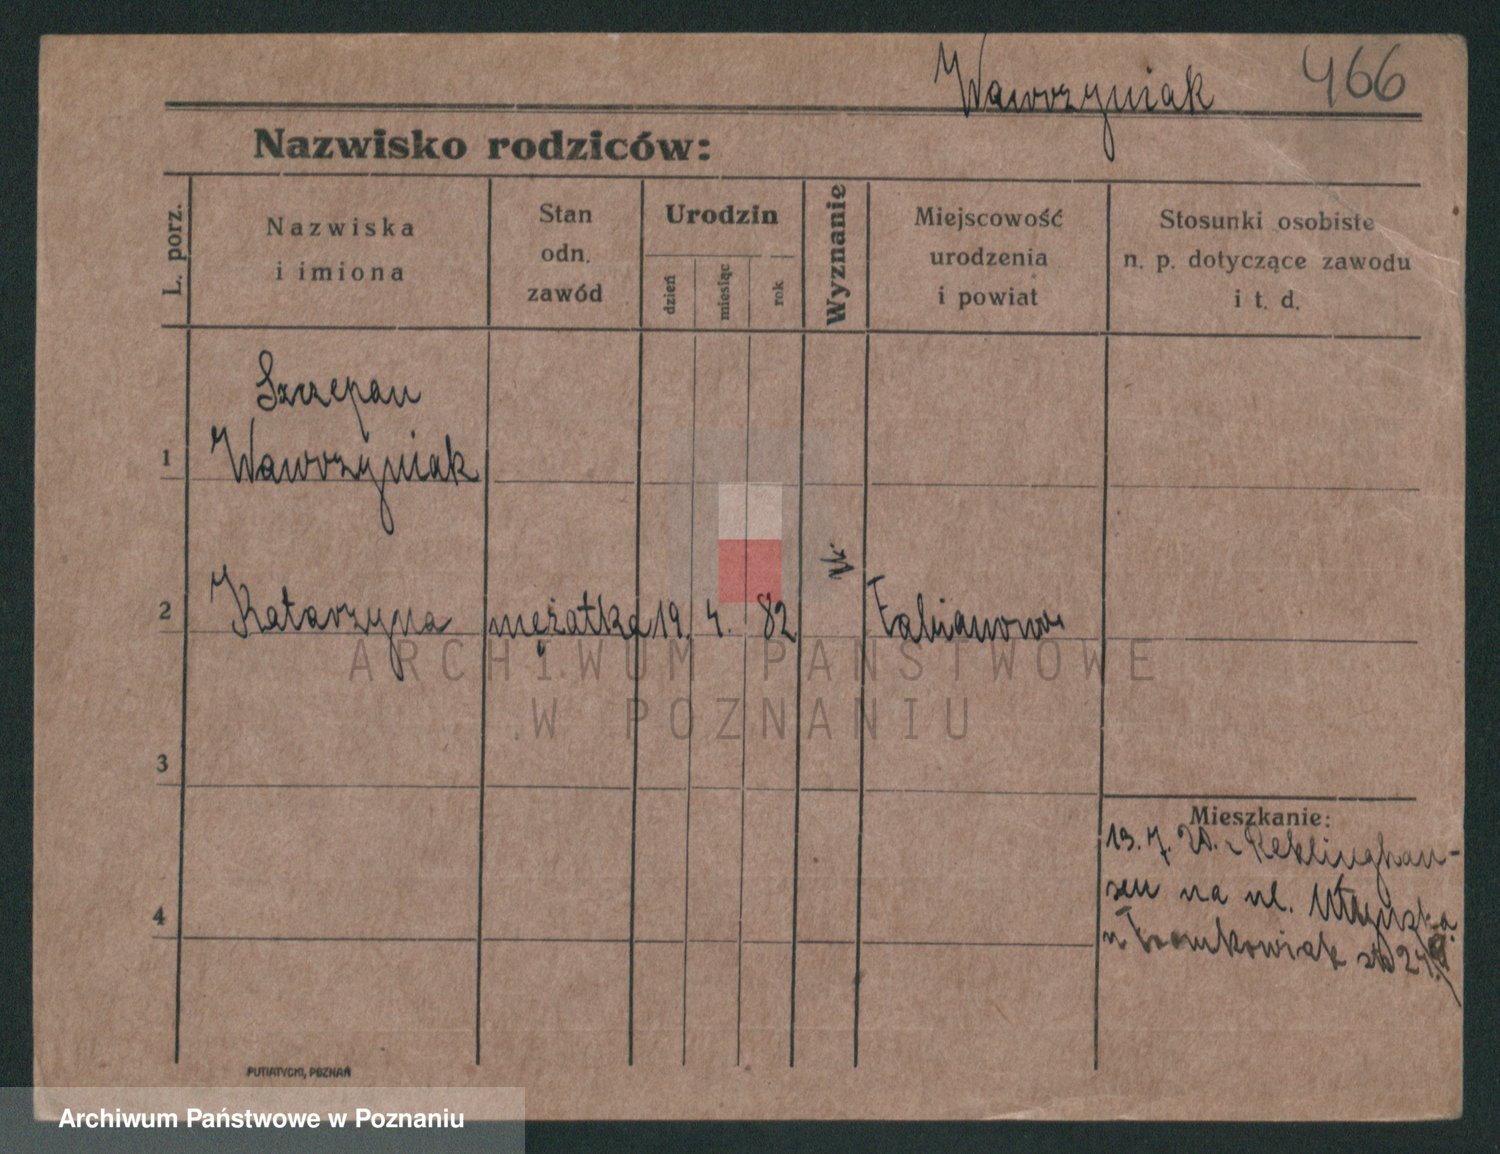 Wawrzyniak 466
Nazwisko rodziców:
L. porz.
Nazwiska
i imiona
Stan
odn.
zawód
Urodzin
dzień
miesiąc
rok
Wyznanie
Miejscowość
urodzenia
i powiat
Stosunki osobiste
n. p. dotyczące zawodu
i t. d.
Szczepan
1 Wawrzyniak
2 Katarzyna mężatka 19. 4. 82 Fabianowo
3
4
Mieszkanie:
13. 7. 20. z Reklinghau-
sen na ul.
n Tomkowiak
PUTIATYCKI, POZNAŃ
ARCHIWUM PAŃSTWOWE
W POZNANIU
Archiwum Państwowe w Poznaniu